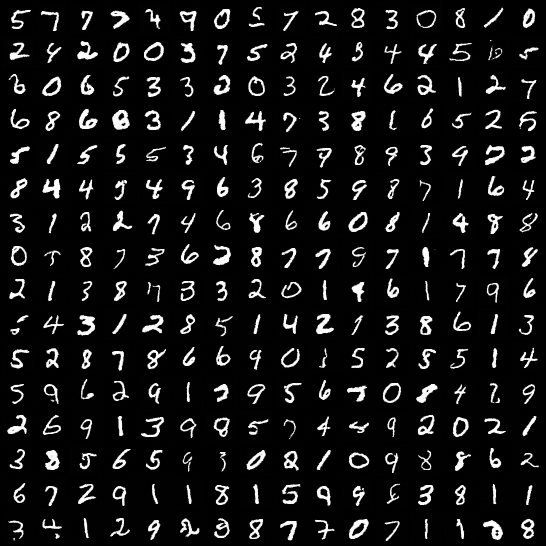 5 7 7 7 4 9 0 5 7 2 8 3 0 8 1 0
2 4 2 0 0 3 7 5 2 4 3 4 4 5 5
6 0 6 5 3 3 2 0 3 2 4 6 2 1 2 7
6 8 6 8 3 1 1 4 7 3 8 1 6 5 2 5
5 1 5 5 5 3 4 6 7 9 8 9 3 9 2 2
8 4 4 5 4 9 6 3 8 5 9 8 7 1 6 4
3 1 2 2 7 4 6 8 6 6 0 8 1 4 8 8
0 5 8 7 3 6 2 8 7 7 9 7 1 7 7 8
2 1 3 8 7 3 3 2 0 1 9 6 1 7 9 6
5 4 3 1 2 8 5 1 4 2 7 3 8 6 1 3
5 2 8 7 8 6 6 9 0 1 5 2 8 5 1 4
5 9 6 2 9 1 2 9 5 6 7 0 8 4 2 9
2 6 9 1 3 9 8 5 7 4 9 2 0 2 1
3 8 5 6 5 9 3 0 2 1 0 9 8 8 6 2
6 7 2 9 1 1 8 1 5 9 9 8 3 8 1 1
3 4 1 2 9 2 9 8 7 7 0 7 1 1 8